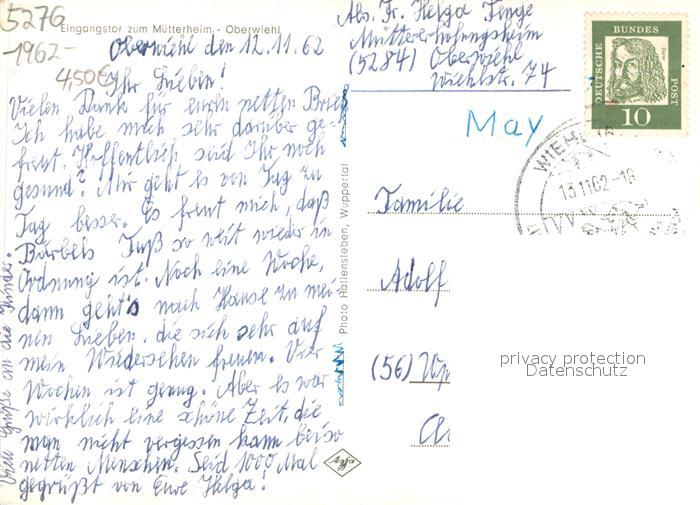 5276
-1962-
4,50€
Eingangstor zum Mütterheim - Oberwiehl
Oberwiehl den 12.11.62
Ihr Lieben!
Vielen Dank für euren netten Brief
Ich habe mich sehr darüber ge-
freut. Hoffentlich seid Ihr noch
gesund? Mir geht es von Tag zu
Tag besser. Es freut mich, daß
Bärbels Fuß so weit wieder in
Ordnung ist. Noch eine Woche,
dann geht's nach Hause zu mei-
nen Lieben, die sich sehr auf
mein Wiedersehen freuen. Vier
Wochen ist genug. Aber es war
wirklich eine schöne Zeit, die
man nicht vergessen kann bei so
netten Menschen. Seid 1000 Mal
gegrüßt von Eure Helga!
Viele Grüße an die Kinder.
Photo Hallensleben, Wuppertal
Agfa
Abs. Fr. Helga
Müttererholungsheim
(5284) Oberwiehl
Wiehlstr. 74
May
DEUTSCHE BUNDES POST
Dürer
10
WIEHL
13.11.62-18
Familie
Adolf
(56) Wup
privacy protection
Datenschutz